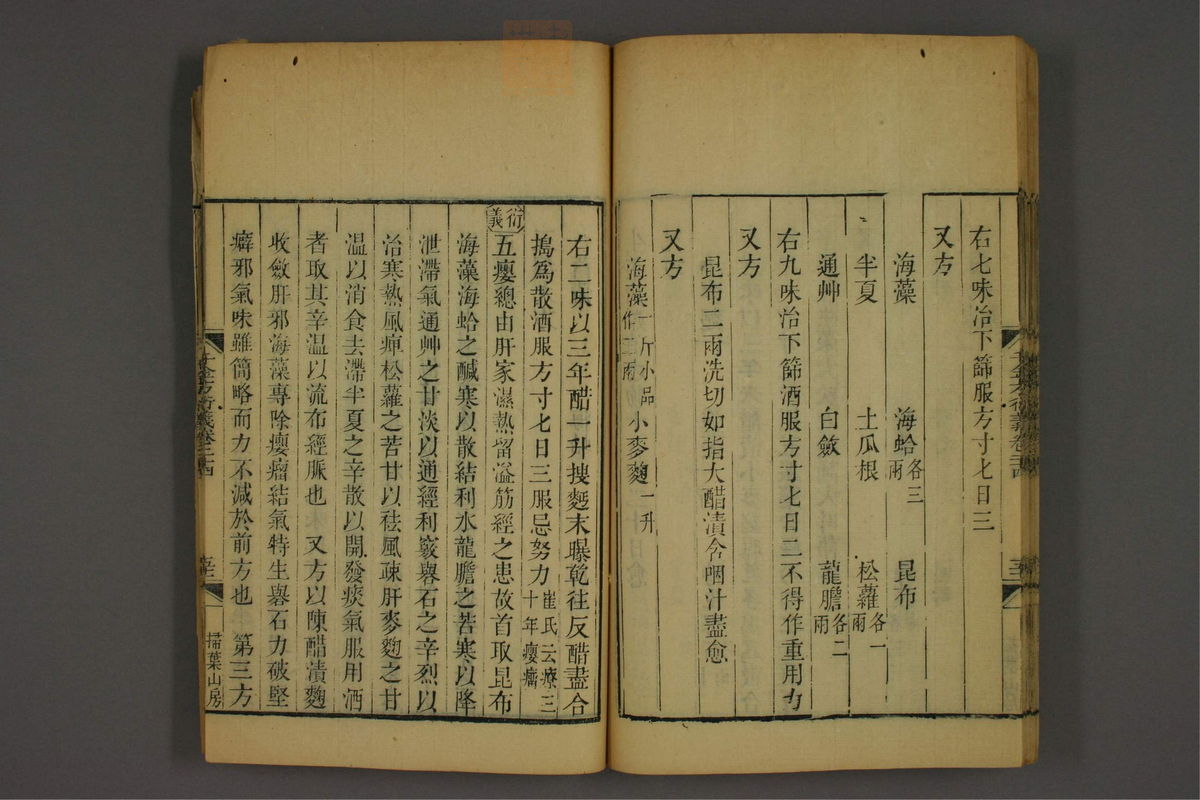 右七味治下篩服方寸七日三
又方
海藻 海蛤各三兩 昆布
半夏 土瓜根 松蘿各一兩
通艸 白斂 龍膽各二兩
右九味治下篩酒服方寸七日二不得作重用力
又方
昆布二兩洗切如指大醋漬含咽汁盡愈
又方
海藻一斤小品作二兩 小麥麴一升
右二味以三年醋一升搜麪末曝乾往反醋盡合
搗爲散酒服方寸七日三服忌努力崔氏云療三十年癭瘤
衍義 五癭總由肝家濕熱留溢筋經之患故首取昆布
海藻海蛤之鹹寒以散結利水龍膽之苦寒以降
泄滯氣通艸之甘淡以通經利竅礜石之辛烈以
治寒熱風痺松蘿之苦甘以袪風疎肝麥麴之甘
温以消食去滯半夏之辛散以開發痰氣服用酒
者取其辛温以流布經脈也 又方以陳醋漬麴
收斂肝邪海藻專除癭瘤結氣特生礜石力破堅
癖邪氣味雖簡略而力不減於前方也 第三方
千金方衍義卷二十四
掃葉山房